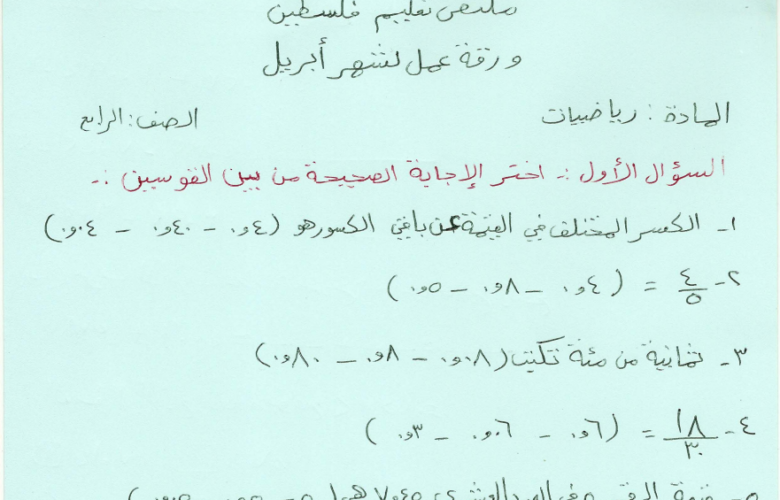 ملتقى تعليم فلسطين
ورقة عمل لشهر أبريل
المادة : رياضيات الصف : الرابع
السؤال الأول :- اختر الإجابة الصحيحة من بين القوسين :-
١- الكسر المختلف في القيمة عن باقي الكسور هو (٤و٠ - ٤٠و٠ - ٠٤و٠)
٢- ٤/٥ = (٤و٠ - ٨و٠ - ٥و٠)
٣- ثمانية من مئة تكتب (٠٨و٠ - ٨و٠ - ٨٠و٠)
٤- ١٨/٣٠ = (٦و٠ - ٠٦و٠ - ٣و٠)